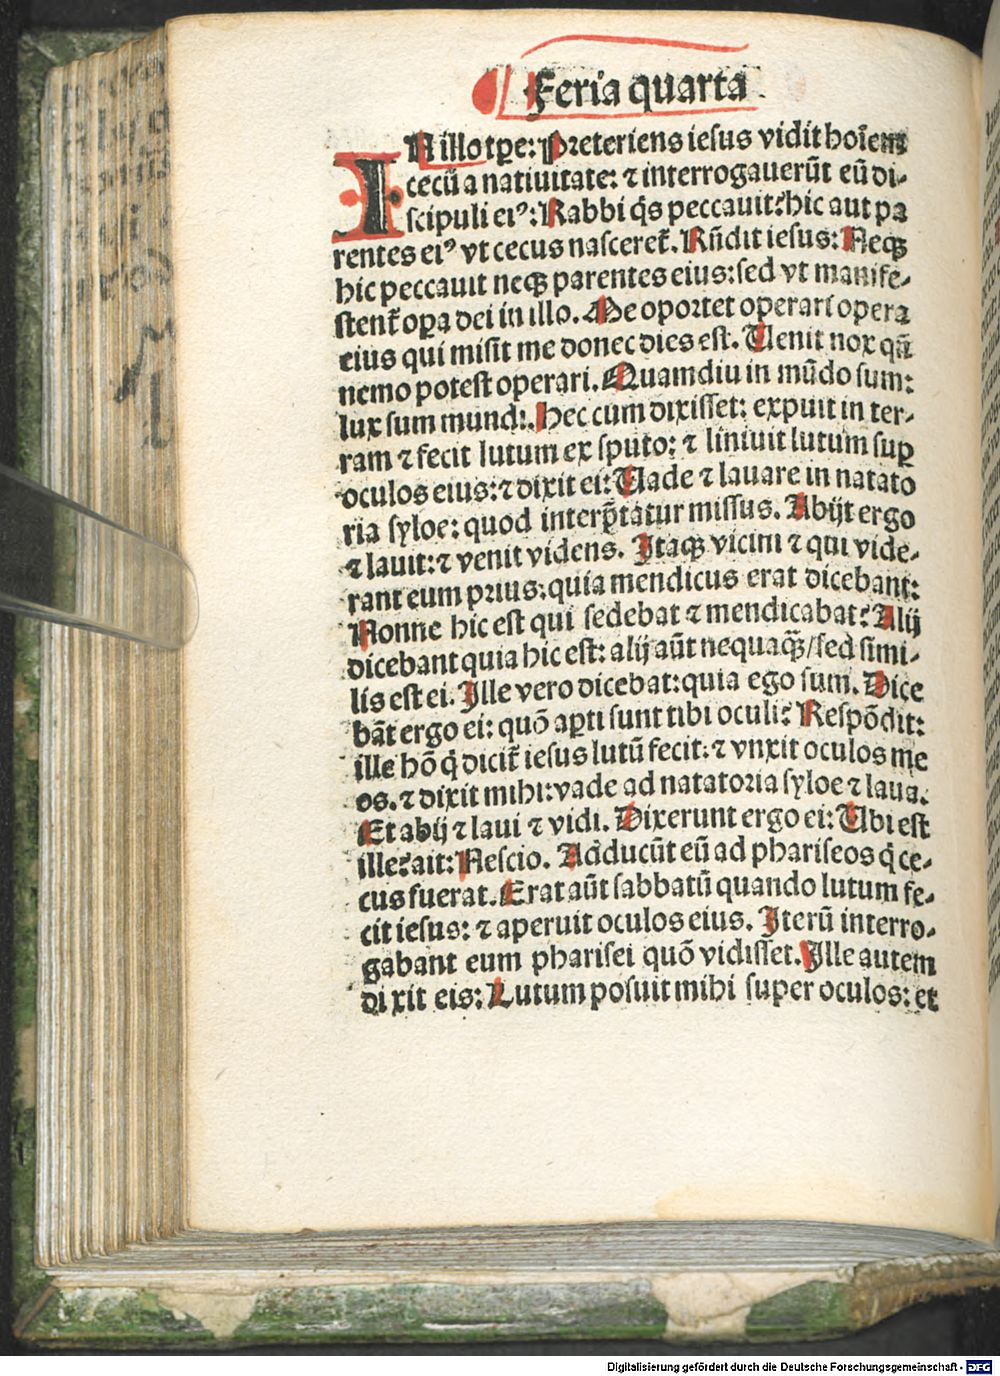 Feria quarta
IN illo tp̄e: Preteriens iesus vidit hoīem
cecū a natiuitate: ⁊ interrogauerūt eū di-
scipuli eiꝰ: Rabbi q̇s peccauit: hic aut pa
rentes eiꝰ vt cecus nasceret᷑. Rn̄dit iesus: Neqꝫ
hic peccauit neqꝫ parentes eius: sed vt manife-
stent᷑ oꝑa dei in illo. Me oportet operari opera
eius qui misit me donec dies est. Uenit nox qn̄
nemo potest operari. Quamdiu in mūdo sum:
lux sum mundi. Hec cum dixisset: expuit in ter-
ram ⁊ fecit lutum ex sputo: ⁊ liniuit lutum suꝑ
oculos eius: ⁊ dixit ei: Uade ⁊ lauare in natato
ria syloe: quod interp̄tatur missus. Abijt ergo
⁊ lauit: ⁊ venit videns. Itaqꝫ vicini ⁊ qui vide-
rant eum prius: quia mendicus erat dicebant:
Nonne hic est qui sedebat ⁊ mendicabat? Alij
dicebant quia hic est: alij aūt nequaqꝫ̄/ sed simi-
lis est ei. Ille vero dicebat: quia ego sum. Dice
bāt ergo ei: quō aꝑti sunt tibi oculi? Respōdit:
ille hō q̇ dicit᷑ iesus lutū fecit: ⁊ vnxit oculos me
os. ⁊ dixit mihi: vade ad natatoria syloe ⁊ laua.
Et abij ⁊ laui ⁊ vidi. Dixerunt ergo ei: Ubi est
ille? ait: Nescio. Adducūt eū ad phariseos q̇ ce-
cus fuerat. Erat aūt sabbatū quando lutum fe-
cit iesus: ⁊ aperuit oculos eius. Iterū interro-
gabant eum pharisei quō vidisset. Ille autem
dixit eis: Lutum posuit mihi super oculos: et
Digitalisierung gefördert durch die Deutsche Forschungsgemeinschaft - DFG